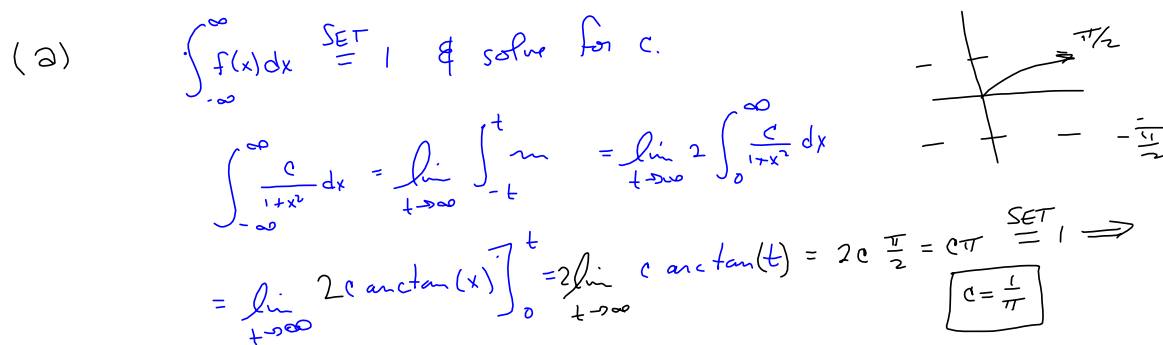 (a) ∫_{-∞}^{∞} f(x)dx SET = 1 & solve for c.
π/2
-π/2
∫_{-∞}^{∞} c/(1+x²) dx = lim_{t→∞} ∫_{-t}^{t} = lim_{t→∞} 2 ∫_{0}^{∞} c/(1+x²) dx
= lim_{t→∞} 2c arctan(x) ]_{0}^{t} = 2 lim_{t→∞} c arctan(t) = 2c π/2 = cπ SET = 1 ⇒
c = 1/π